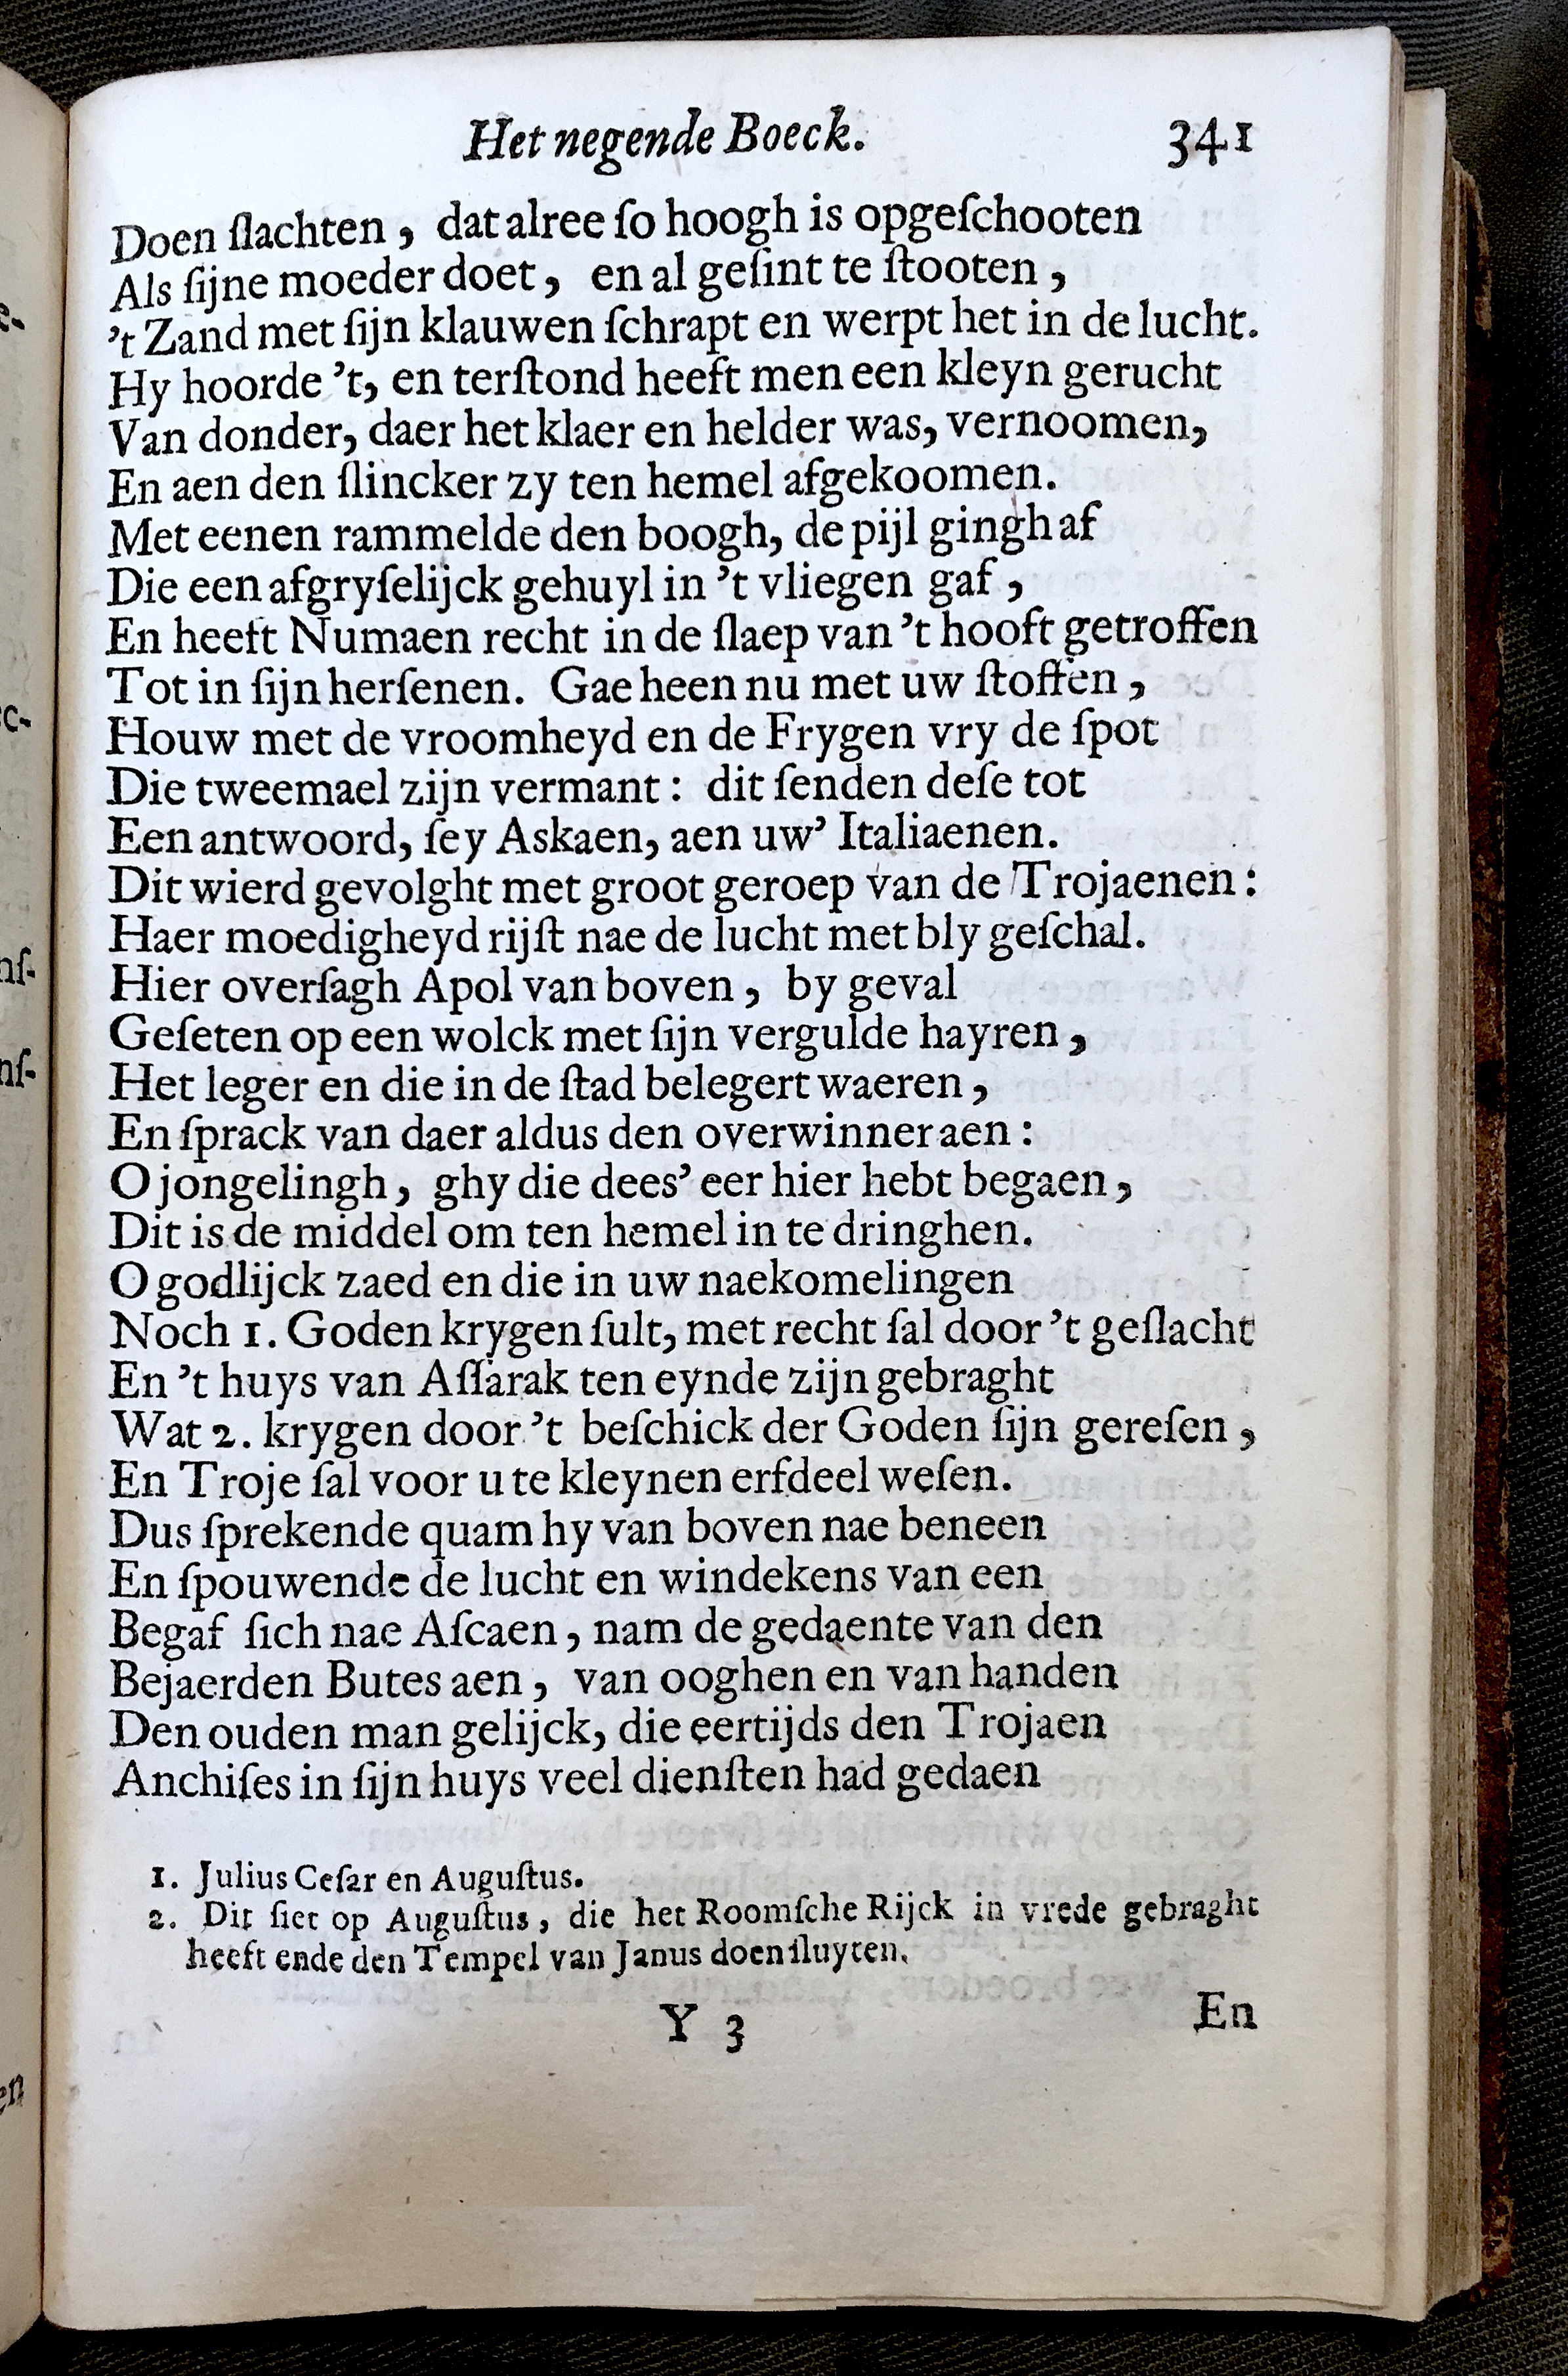 Het negende Boeck. 341
Doen ſlachten, dat alree ſo hoogh is opgeſchooten
Als ſijne moeder doet, en al geſint te ſtooten,
't Zand met ſijn klauwen ſchrapt en werpt het in de lucht.
Hy hoorde 't, en terſtond heeft men een kleyn gerucht
Van donder, daer het klaer en helder was, vernoomen,
En aen den ſlincker zy ten hemel afgekoomen.
Met eenen rammelde den boogh, de pijl gingh af
Die een afgryſelijck gehuyl in 't vliegen gaf,
En heeft Numaen recht in de ſlaep van 't hooft getroffen
Tot in ſijn herſenen. Gae heen nu met uw ſtoffen,
Houw met de vroomheyd en de Frygen vry de ſpot
Die tweemael zijn vermant: dit ſenden deſe tot
Een antwoord, ſey Askaen, aen uw' Italiaenen.
Dit wierd gevolght met groot geroep van de Trojaenen:
Haer moedigheyd rijſt nae de lucht met bly geſchal.
Hier overſagh Apol van boven, by geval
Geſeten op een wolck met ſijn vergulde hayren,
Het leger en die in de ſtad belegert waeren,
En ſprack van daer aldus den overwinner aen:
O jongelingh, ghy die dees' eer hier hebt begaen,
Dit is de middel om ten hemel in te dringhen.
O godlijck zaed en die in uw naekomelingen
Noch 1. Goden krygen ſult, met recht ſal door 't geſlacht
En 't huys van Aſſarak ten eynde zijn gebraght
Wat 2. krygen door 't beſchick der Goden ſijn gereſen,
En Troje ſal voor u te kleynen erfdeel weſen.
Dus ſprekende quam hy van boven nae beneen
En ſpouwende de lucht en windekens van een
Begaf ſich nae Aſcaen, nam de gedaente van den
Bejaerden Butes aen, van ooghen en van handen
Den ouden man gelijck, die eertijds den Trojaen
Anchiſes in ſijn huys veel dienſten had gedaen
1. Julius Ceſar en Auguſtus.
2. Dit ſiet op Auguſtus, die het Roomſche Rijck in vrede gebraght
heeft ende den Tempel van Janus doen ſluyten.
Y 3 En